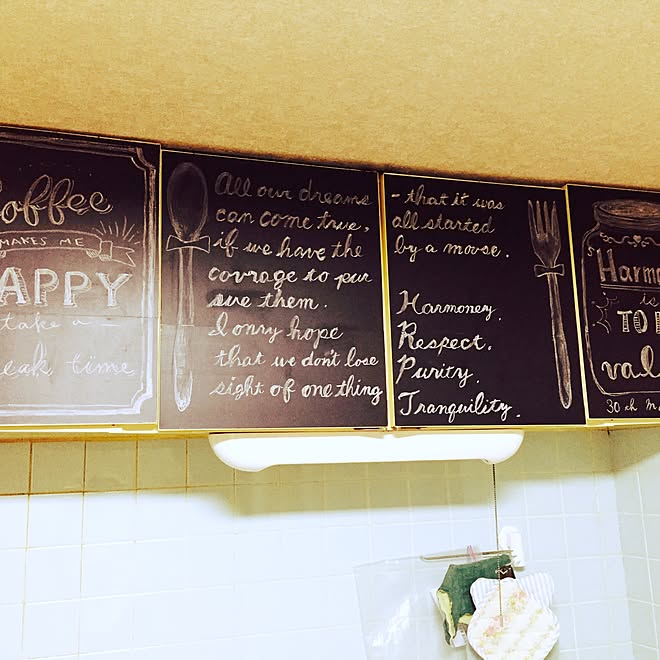 offee
MAKES ME
APPY
take a
eak time
All our dreams
can come true,
if we have the
courage to pur
sue them.
I onry hope
that we don't lose
sight of one thing
- that it was
all started
by a mouse.
Harmoney.
Respect.
Purity.
Tranquility.
Harmo
is
TO
val
30 ch m